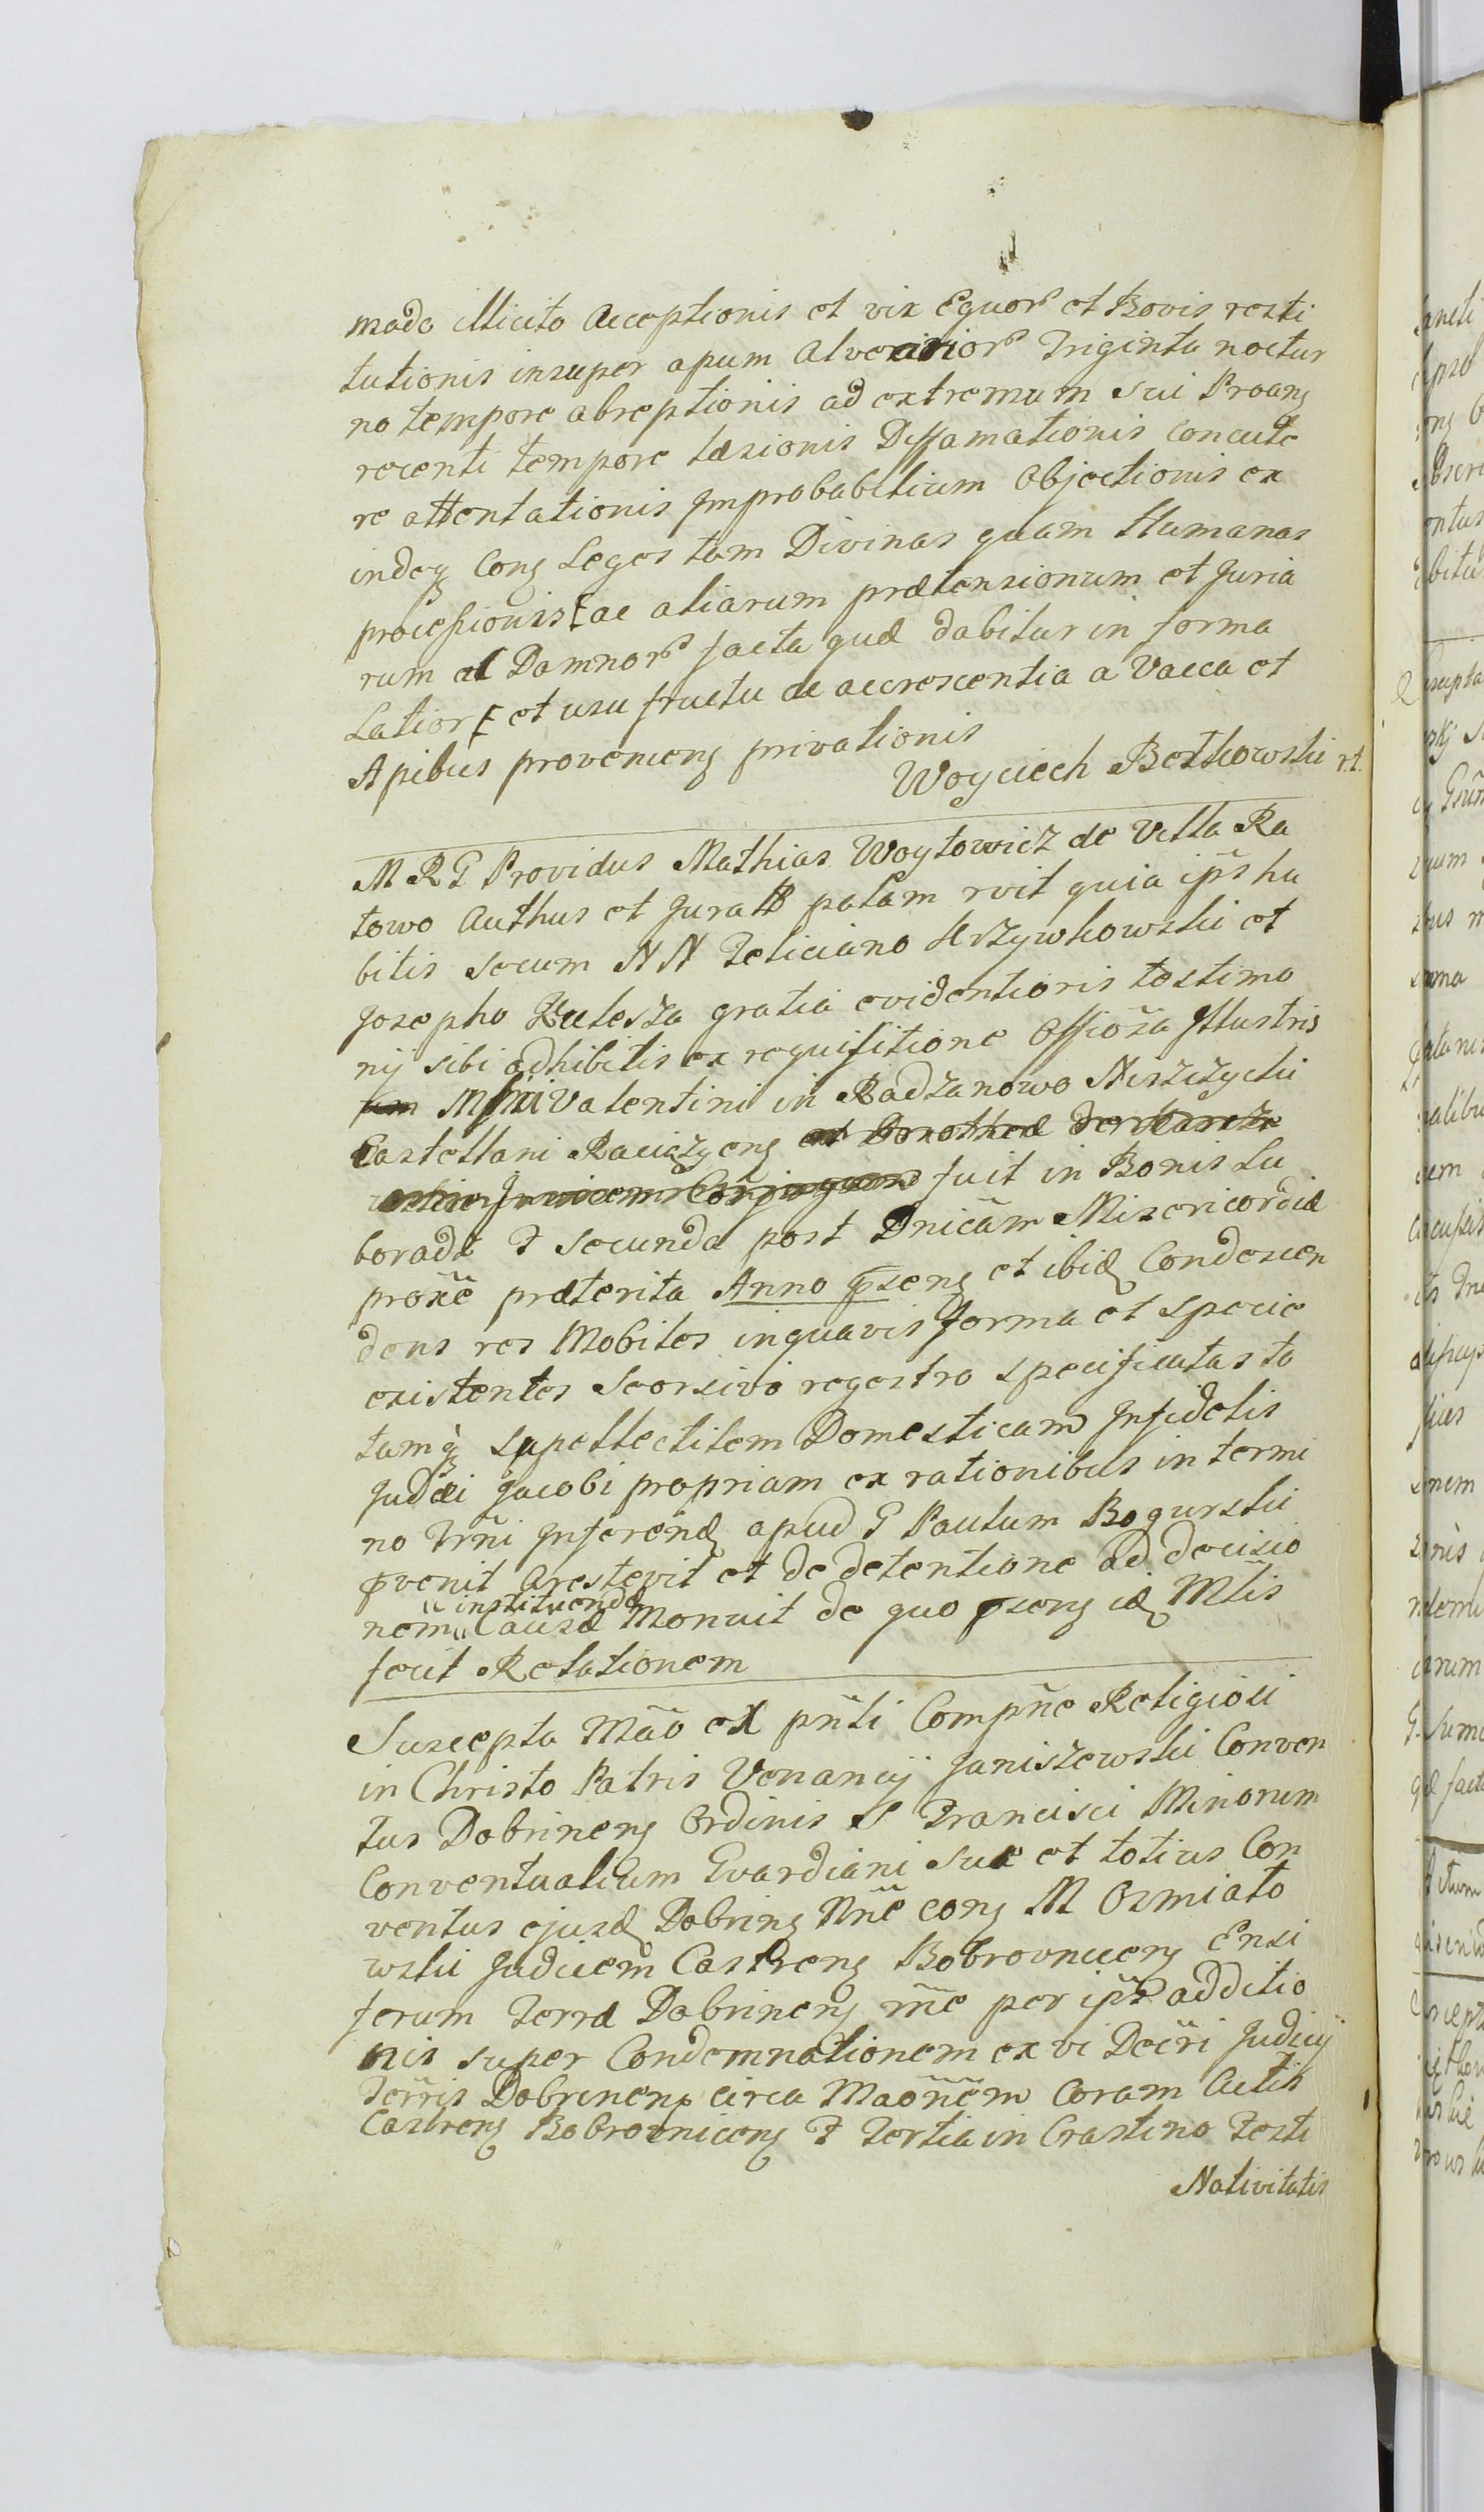 modo illicito Acceptionis et vix Equor et Bovis resti
tutionis insuper apum Alvearior Triginta noctur
no tempore abreptionis ad extremum sui Proang
recenti tempore Læsionis Diffamationis concute
re attentationis Improbabilium Objectionis ex
indeq Cong Leges tam Divinas quam Humanas
processionis [ac aliarum prætensionum et Juria
rum al Damnor facta quæ dabitur in forma
Latiori [et usu fructu de accrescentia a Vacca et
Apibus proveniens privationis
Woyciech Betkowski r.t.
M R G Providus Mathias Woytowicz de Villa Ra
towo Authus et Juratt palam rvit quia ips ha
bitis secum N N Feliciano Krzywkowski et
Josepho Kulesza gratia evidentioris testimo
nij sibi adhibitis ex requisitione Offiosa Illustris
Mfici Valentini in Radzanowo Niszczycki
Castellani Raciązeng et Dorotheæ
fuit in Bonis Lu
boradz F Secunda post Dnicam Misericordiæ
proxe præterita Anno pseng et ibid Condescen
dens res Mobiles inquavis forma et specie
existentes Seorsivo regestro specificatas to
tamq supellectilem Domesticam Infidelis
Judæi Jacobi propriam ex rationibus in termi
no Trni Inferend apud G Paulum Bogurski
pvenit Arestevit et de detentione ad decisio
nem „instituendæ Causæ Monuit de quo pseng id Mtis
fecit Relationem
Suscepta Mão ex pñti Compñe Religiosi
in Christo Patris Venancij Janiszewski Conven
tus Dobrineng Ordinis S Francisci Minorum
Conventualium Gvardiani suæ et totius Con
ventus ejusd Dobring Nñe cong M Osmiało
wski Judicem Castreng Bobrovniceng Ensi
ferum Terræ Dobrineng mñe per ips additio
nis super Condemnationem ex vi Decri Judicij
Terris Dobrineng circa Maoñem Coram Actis
Castreng Bobrovniceng F Tertia in Crastino Festi
Nativitatis